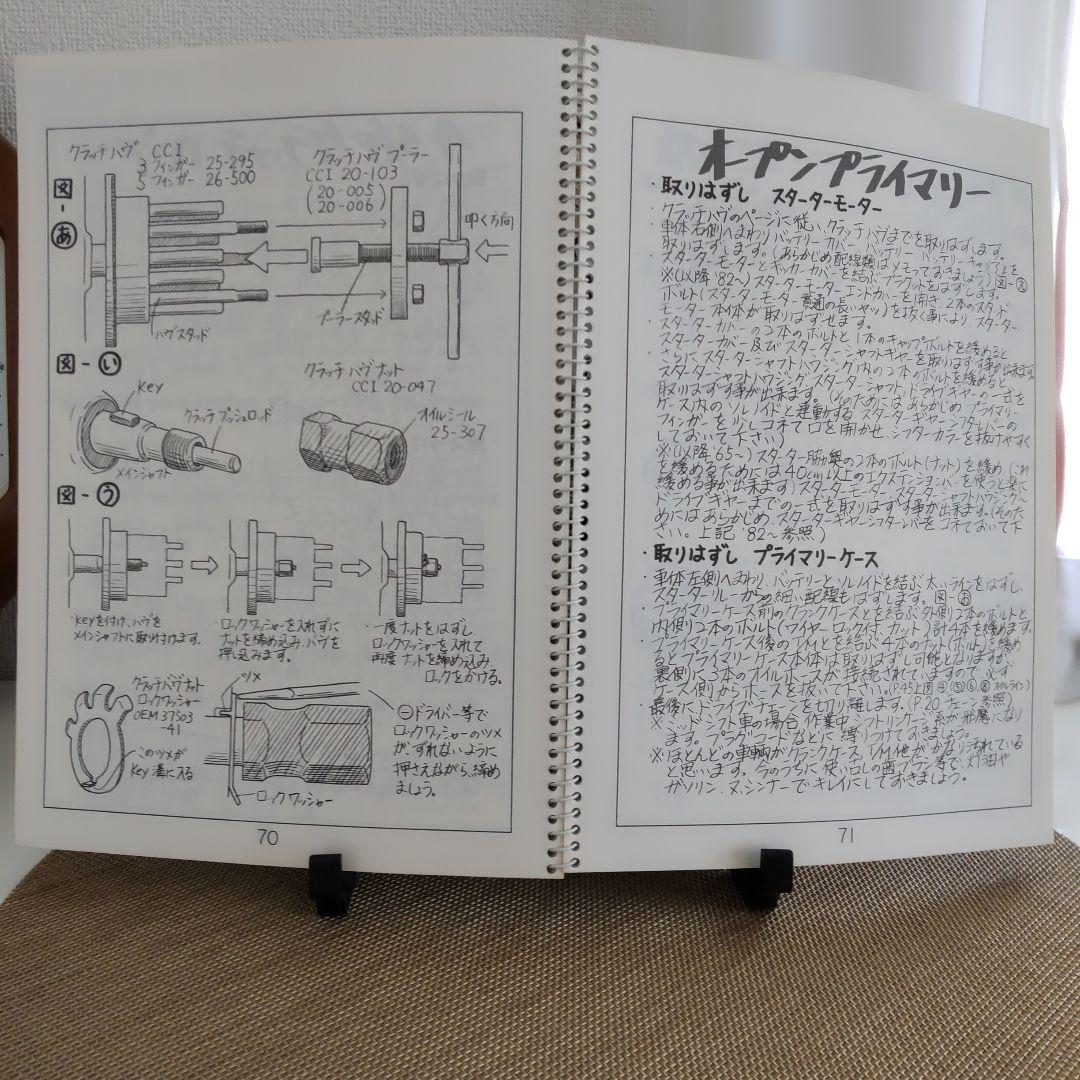 クラッチハヴ CCI
3フィンガー 25-295
5フィンガー 26-500
図-あ
クラッチハヴプーラー
CCI 20-103
(20-005)
(20-006)
叩く方向
プーラースタッド
ハヴスタッド
図-い
Key
クラッチプッシュロッド
メインシャフト
クラッチハヴナット
CCI 20-047
オイルシール
25-307
図-う
・Keyを付け、ハヴを
メインシャフトに取り付けます。
・ロックワッシャーを入れずに
ナットを締め込み、ハヴを
押し込みます。
・一度ナットをはずし、
ロックワッシャーを入れて
再度ナットを締め込み、
ロックをかける。
クラッチハヴナット
ロックワッシャー
OEM 37503
-41
このツメが
Key溝に入る
ツメ
ロックワッシャー
⊖ドライバー等で
ロックワッシャーのツメ
が、ずれないように
押さえながら、締め
ましょう。
70
オープンプライマリー
・取りはずし スターターモーター
・クラッチハヴのページに従い、クラッチハヴまでを取りはずします。
・車体右側へまわり、バッテリーカバー、バッテリー、バッテリーキャリアとを
取りはずします。(あらかじめ配線類はメモっておきましょう)
・スターターモーターとキッカーカバーを結ぶブラケットをはずします。
※(以降'82~)スターターモーターエンドカバーを開き、2本のスタッド
ボルト(スターターモーター貫通の長いヤツ)を抜く事により、スターター
モーター本体が取りはずせます。
・スターターカバーの2本のボルトと1本のキャップボルトを緩めると
スターターカバー及びスターターシャフトギヤーを取りはずす事が出来ます。
・さらにスターターシャフトハウジング内の2本のボルトを緩めると
スターターシャフトハウジング、スターターシャフト、ドライブギヤーの一式を
取りはずす事が出来ます。(そのためにはあらかじめプライマリー
ケース内のソレノイドと連動するスターターギヤーシフターレバーの
フィンガーを少しコネて口を開かせ、シフターカラーを抜けやすく
しておいて下さい)
※(以降'65~)スターター脇奥の2本のボルト(ナット)を緩め(これ
を緩めるためには40cm以上のエクステンションバーを使うと楽に
緩める事が出来ます)スターターモーター、スターターシャフトハウジング~
ドライブギヤーまでの一式を取りはずす事が出来ます。(そのた
めにはあらかじめ、スターターギヤーシフターレバーをコネておいて下
さい。上記'82~参照)
・取りはずし プライマリーケース
・車体左側へまわり、バッテリーとソレノイドを結ぶ太いラインをはずし、
スターターリレーからの細い配線もはずします。図-お
・プライマリーケース前のクランクケースとを結ぶ外側2本のボルトと
内側2本のボルト(ワイヤーロック付、カット)計4本を緩めます。
・プライマリーケース後のT/Mとを結ぶ4本のナット(ボルト)を緩め
るとプライマリーケース本体は取りはずし可能となりますが、
裏側に3本のオイルホースが接続されていますので、必ず
ケース側からホースを抜いて下さい。
・最後にドライブチェーンを切り離します。(P.20 チェーン参照)
※ハンドシフト車の場合、作業中シフトリンケージ系が邪魔になり
ます。プラグコードなどに縛りつけておきましょう。
※ほとんどの車輌がクランクケース、T/M他がかなり汚れている
と思います。今のうちに使い古しの歯ブラシ等で、灯油や
ガソリン、又、シンナーでキレイにしておきましょう。
71